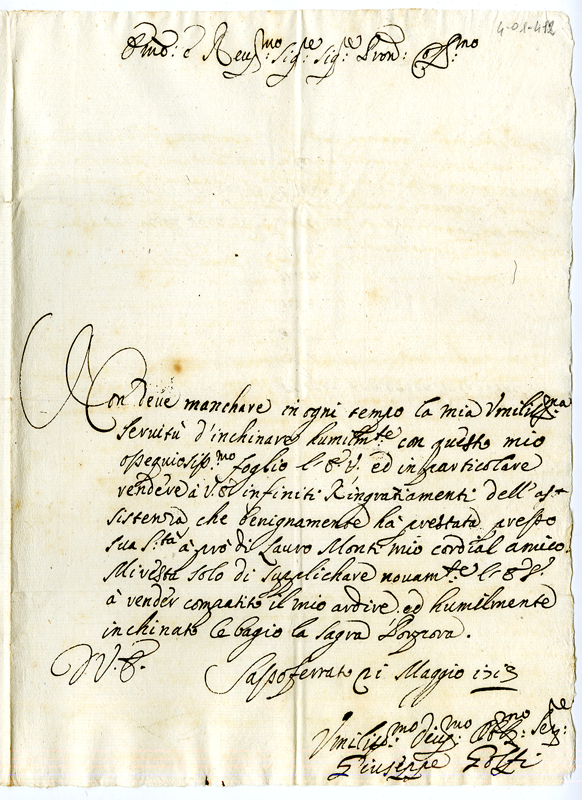 4-01-412
Emo: e Reuer:mo Sig:re Sig:re Pron: Col:mo
Non deve manchare in ogni tempo la mia Vmiliss:ma
Seruitù d'inchinare humilm:te con questo mio
ossequiosiss:mo foglio l'E.V. ed in particolare
rendere à V.E. infiniti Ringratiamenti dell'as-
sistenza che benignamente hà prestata presso
sua S.tà à prò di Lauro Monti mio cordial amico.
Mi resta solo di supplichare nouam:te l'E.V.
à render compatito il mio ardire, ed humilmente
inchinato le bagio la sagra Porpora.
D. V. E.
Sassoferrato 21 Maggio 1713
Vmiliss:mo Deuot:mo Obl:mo Ser:re
Giuseppe